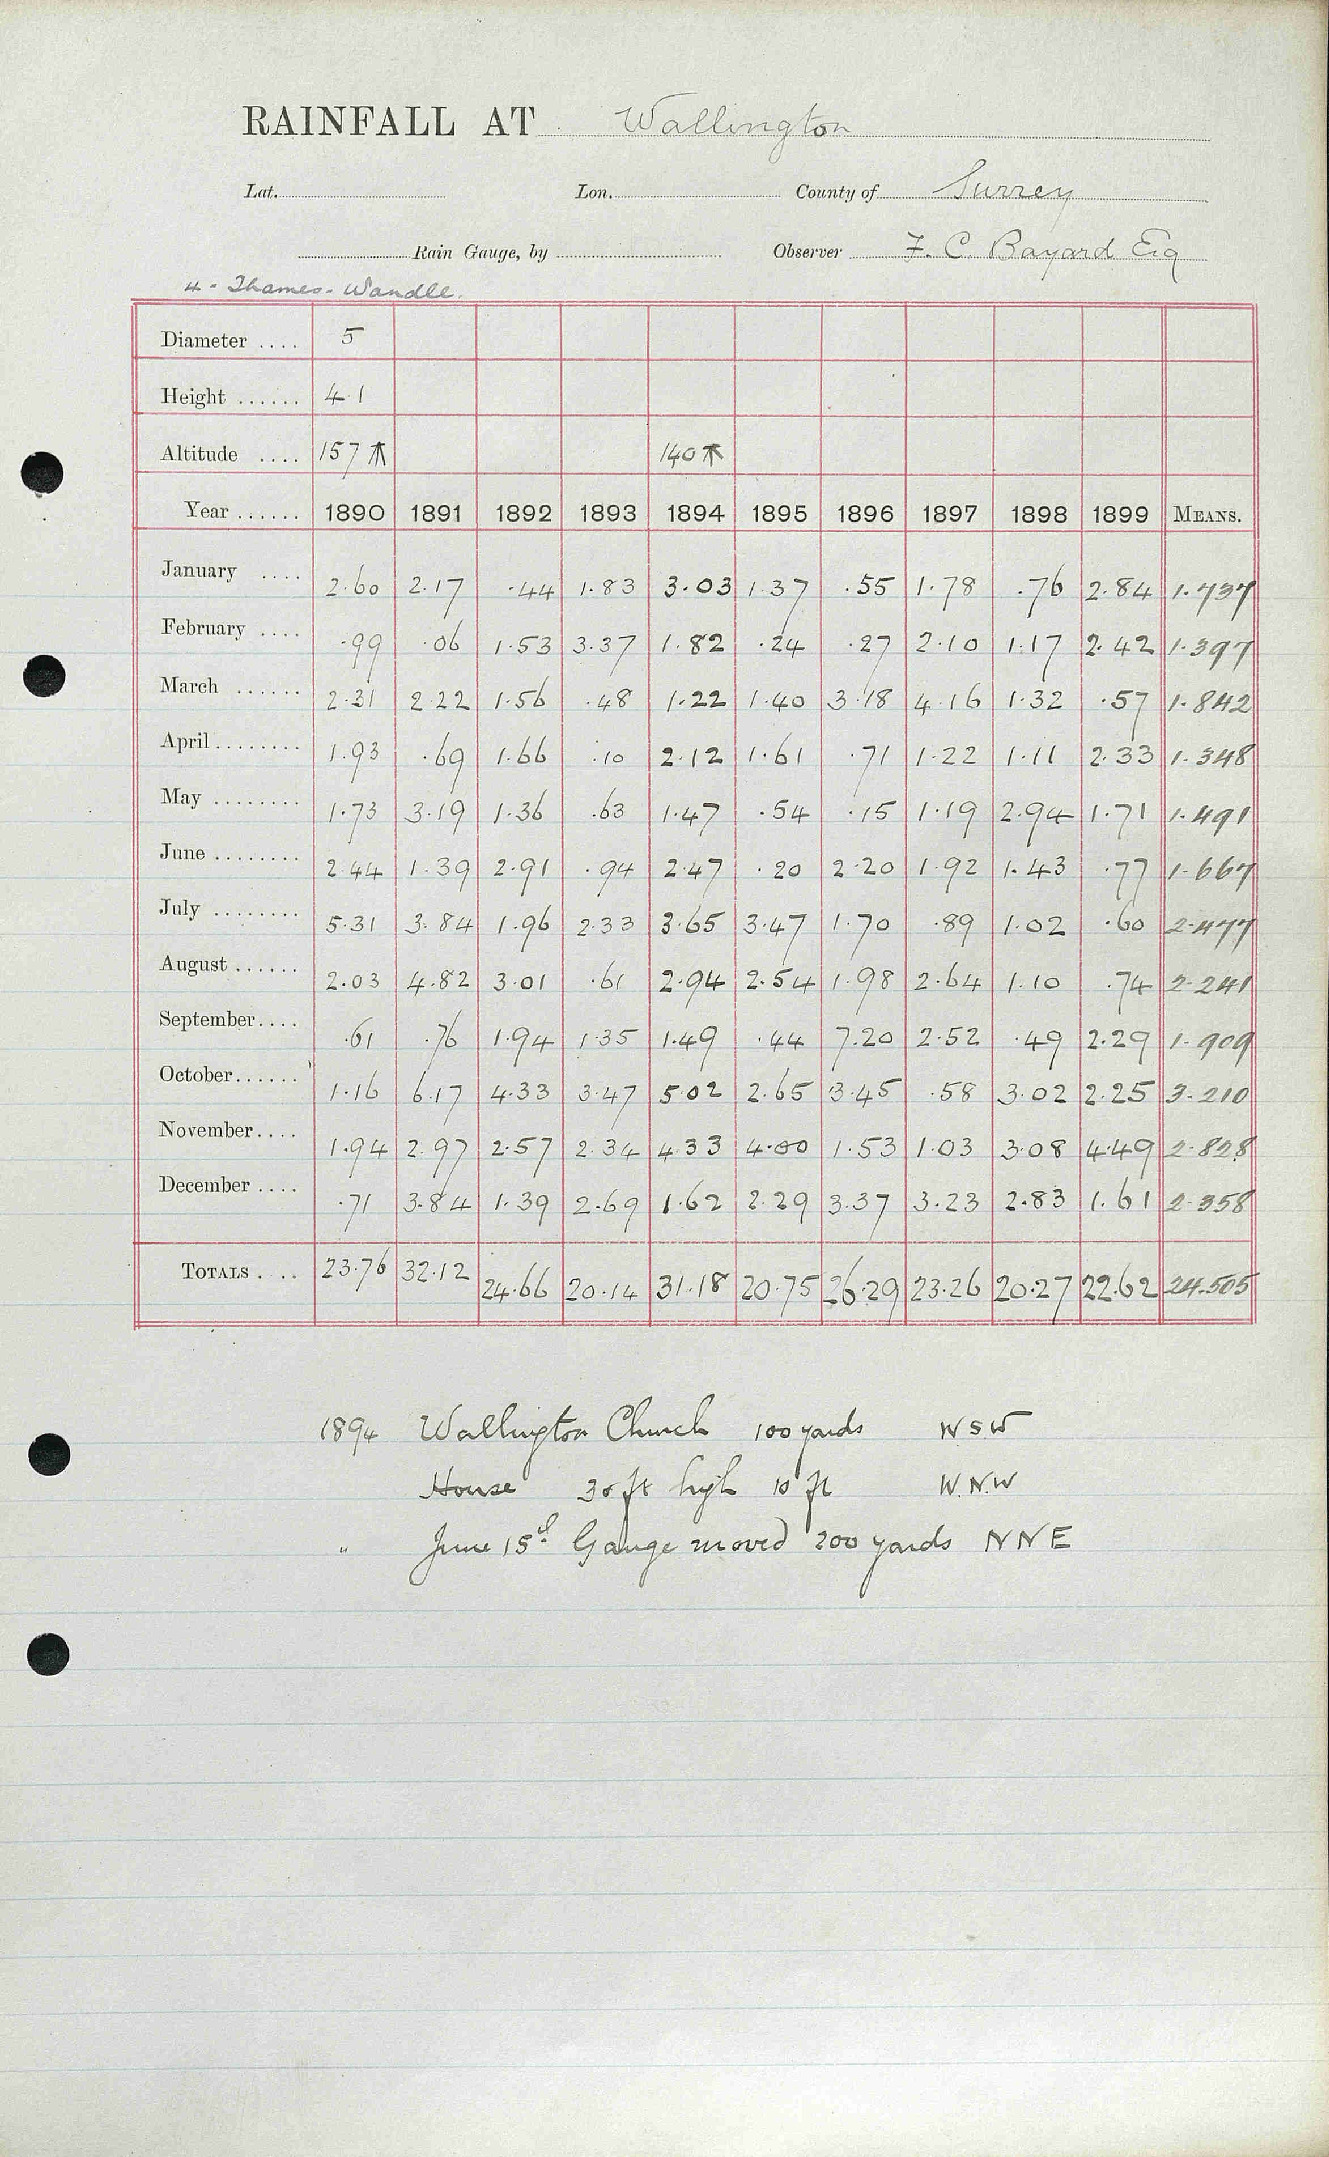 RAINFALL AT Wallington
Lat. Lon. County of Surrey
Rain Gauge, by Observer F. C. Bayard Esq
4 - Thames - Wandle.
Diameter .... 5
Height ...... 4·1
Altitude .... 157 140
Year ...... 1890 1891 1892 1893 1894 1895 1896 1897 1898 1899 MEANS.
January .... 2·60 2·17 ·44 1·83 3·03 1·37 ·55 1·78 ·76 2·84 1·737
February .... ·99 ·06 1·53 3·37 1·82 ·24 ·27 2·10 1·17 2·42 1·397
March ...... 2·31 2·22 1·56 ·48 1·22 1·40 3·18 4·16 1·32 ·57 1·842
April ........ 1·93 ·69 1·66 ·10 2·12 1·61 ·71 1·22 1·11 2·33 1·348
May ........ 1·73 3·19 1·36 ·63 1·47 ·54 ·15 1·19 2·94 1·71 1·491
June ........ 2·44 1·39 2·91 ·94 2·47 ·20 2·20 1·92 1·43 ·77 1·667
July ........ 5·31 3·84 1·96 2·33 3·65 3·47 1·70 ·89 1·02 ·60 2·477
August ...... 2·03 4·82 3·01 ·61 2·94 2·54 1·98 2·64 1·10 ·74 2·241
September.... ·61 ·76 1·94 1·35 1·49 ·44 7·20 2·52 ·49 2·29 1·909
October...... 1·16 6·17 4·33 3·47 5·02 2·65 3·45 ·58 3·02 2·25 3·210
November.... 1·94 2·97 2·57 2·34 4·33 4·00 1·53 1·03 3·08 4·49 2·828
December .... ·71 3·84 1·39 2·69 1·62 2·29 3·37 3·23 2·83 1·61 2·358
TOTALS .... 23·76 32·12 24·66 20·14 31·18 20·75 26·29 23·26 20·27 22·62 24·505
1894 Wallington Church 100 yards W S W
House 30 ft high 10 ft W.N.W
" June 15th Gauge moved 200 yards N N E